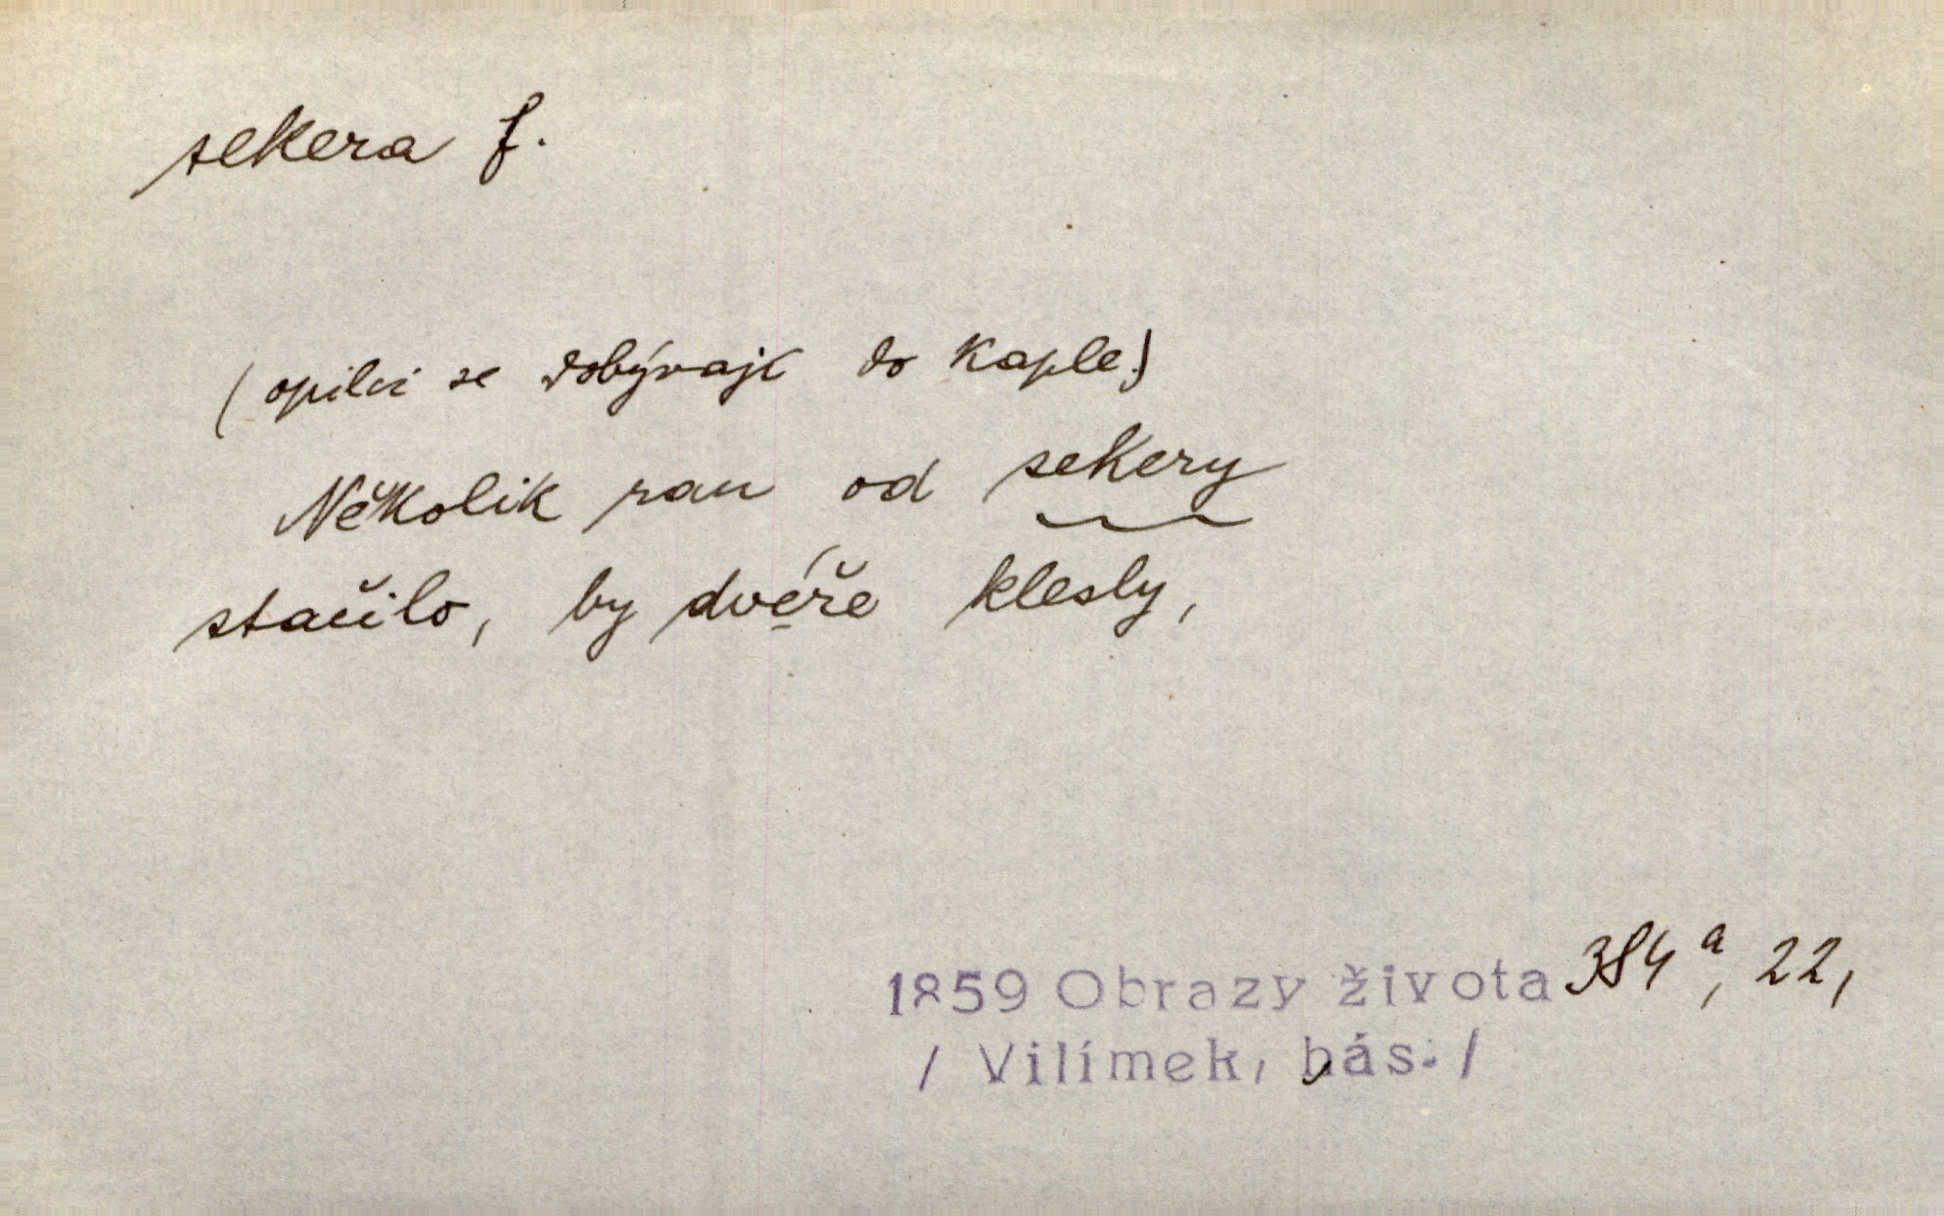 sekera f.
(opilci se dobývají do kaple.)
Několik ran od sekery
stačilo, by dvéře klesly,
1859 Obrazy života 384 a, 22,
/ Vilímek, bás. /